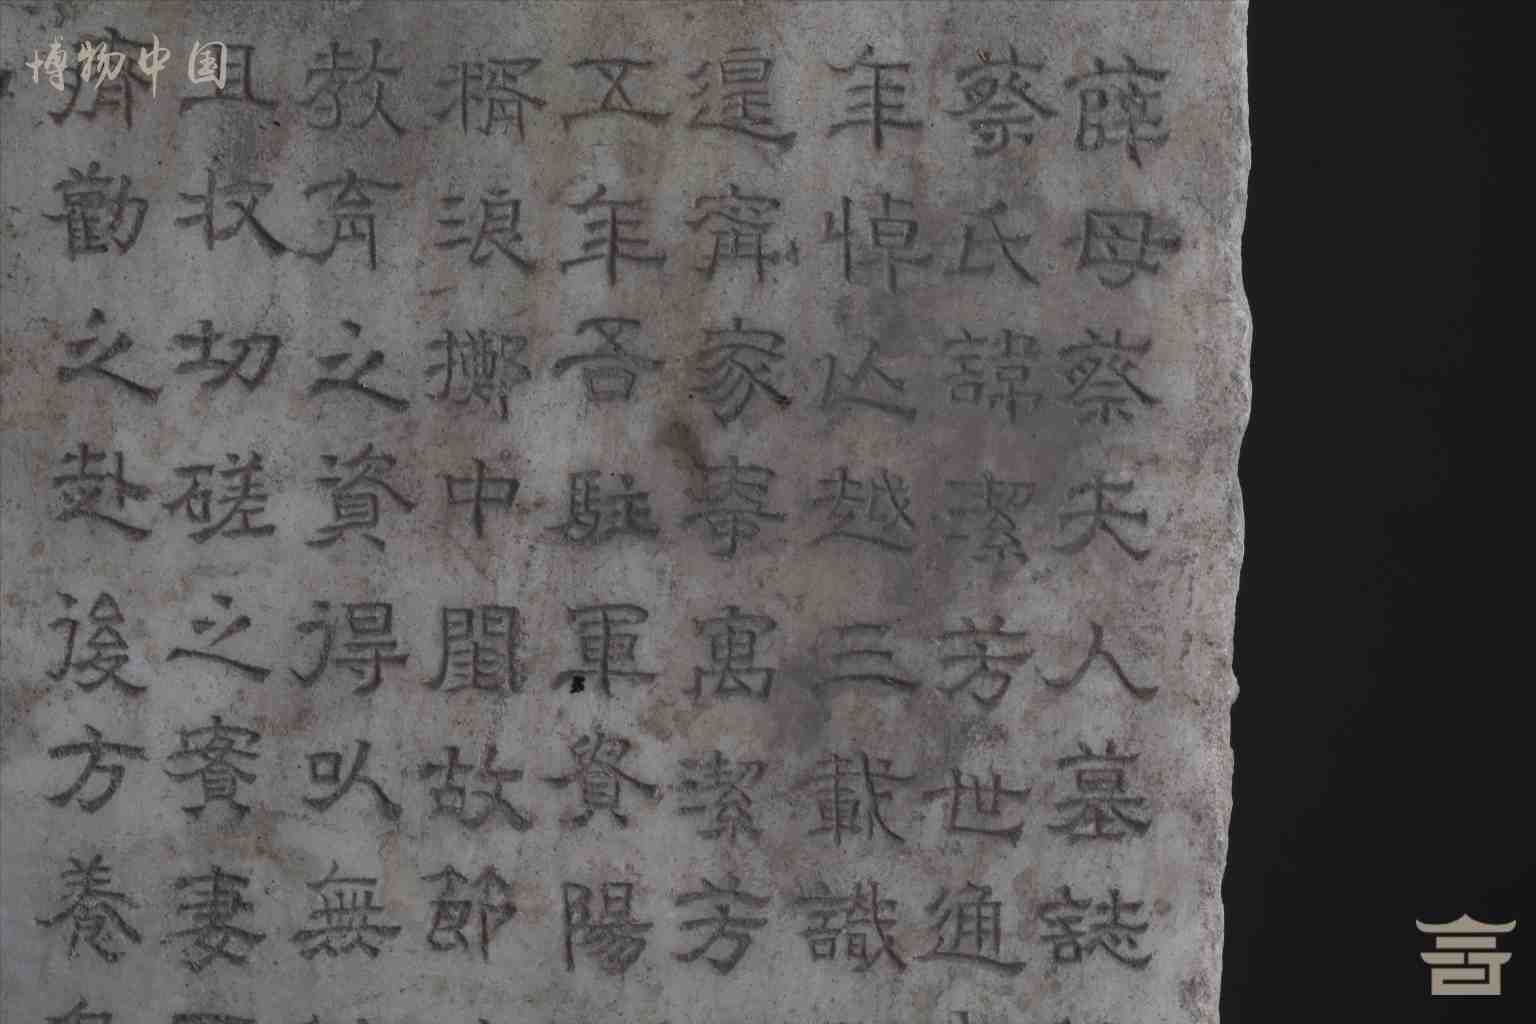 博物中国
薛母蔡夫人墓誌
蔡氏諱潔芳世通
年悼亾越三載識
遑甯家春寓潔芳
五年吾駐軍資陽
壻浪擲中閨故節
教育之資得以無
丑牧切磋之賓妻
齊勸之赴後方養